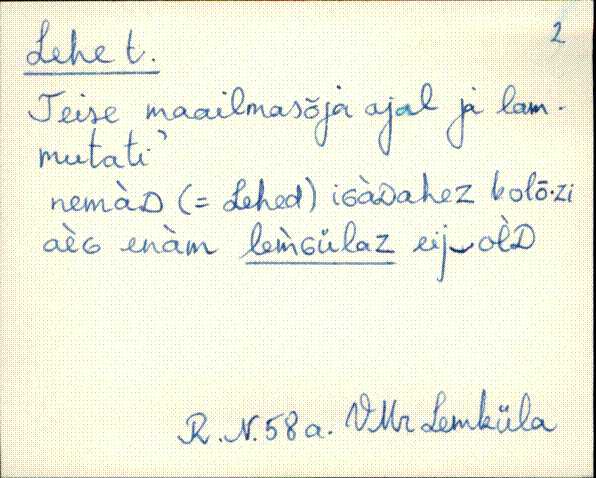 2
Lehe t.
Teise maailmasõja ajal jä lam-
mutati
nemàD (= Lehed) iGàDahez kolō·zi
aèG enàm lem̀Gülaz eij‿olD
R. N. 58 a. VMr Lemküla